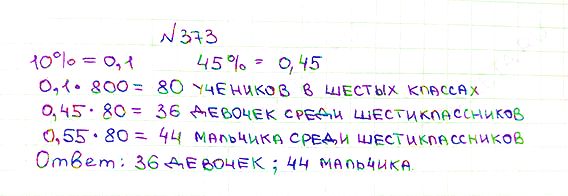 №373
10% = 0,1 45% = 0,45
0,1 · 800 = 80 УЧЕНИКОВ В ШЕСТЫХ КЛАССАХ
0,45 · 80 = 36 ДЕВОЧЕК СРЕДИ ШЕСТИКЛАССНИКОВ
0,55 · 80 = 44 МАЛЬЧИКА СРЕДИ ШЕСТИКЛАССНИКОВ
Ответ: 36 ДЕВОЧЕК; 44 МАЛЬЧИКА.